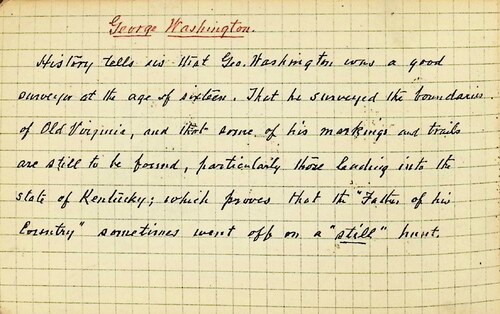 George Washington.
History tells us that Geo. Washington was a good
surveyor at the age of sixteen. That he surveyed the boundaries
of Old Virginia, and that some of his markings and trails
are still to be found, particularly those leading into the
state of Kentucky; which proves that the "Father of his
Country" sometimes went off on a "still" hunt.